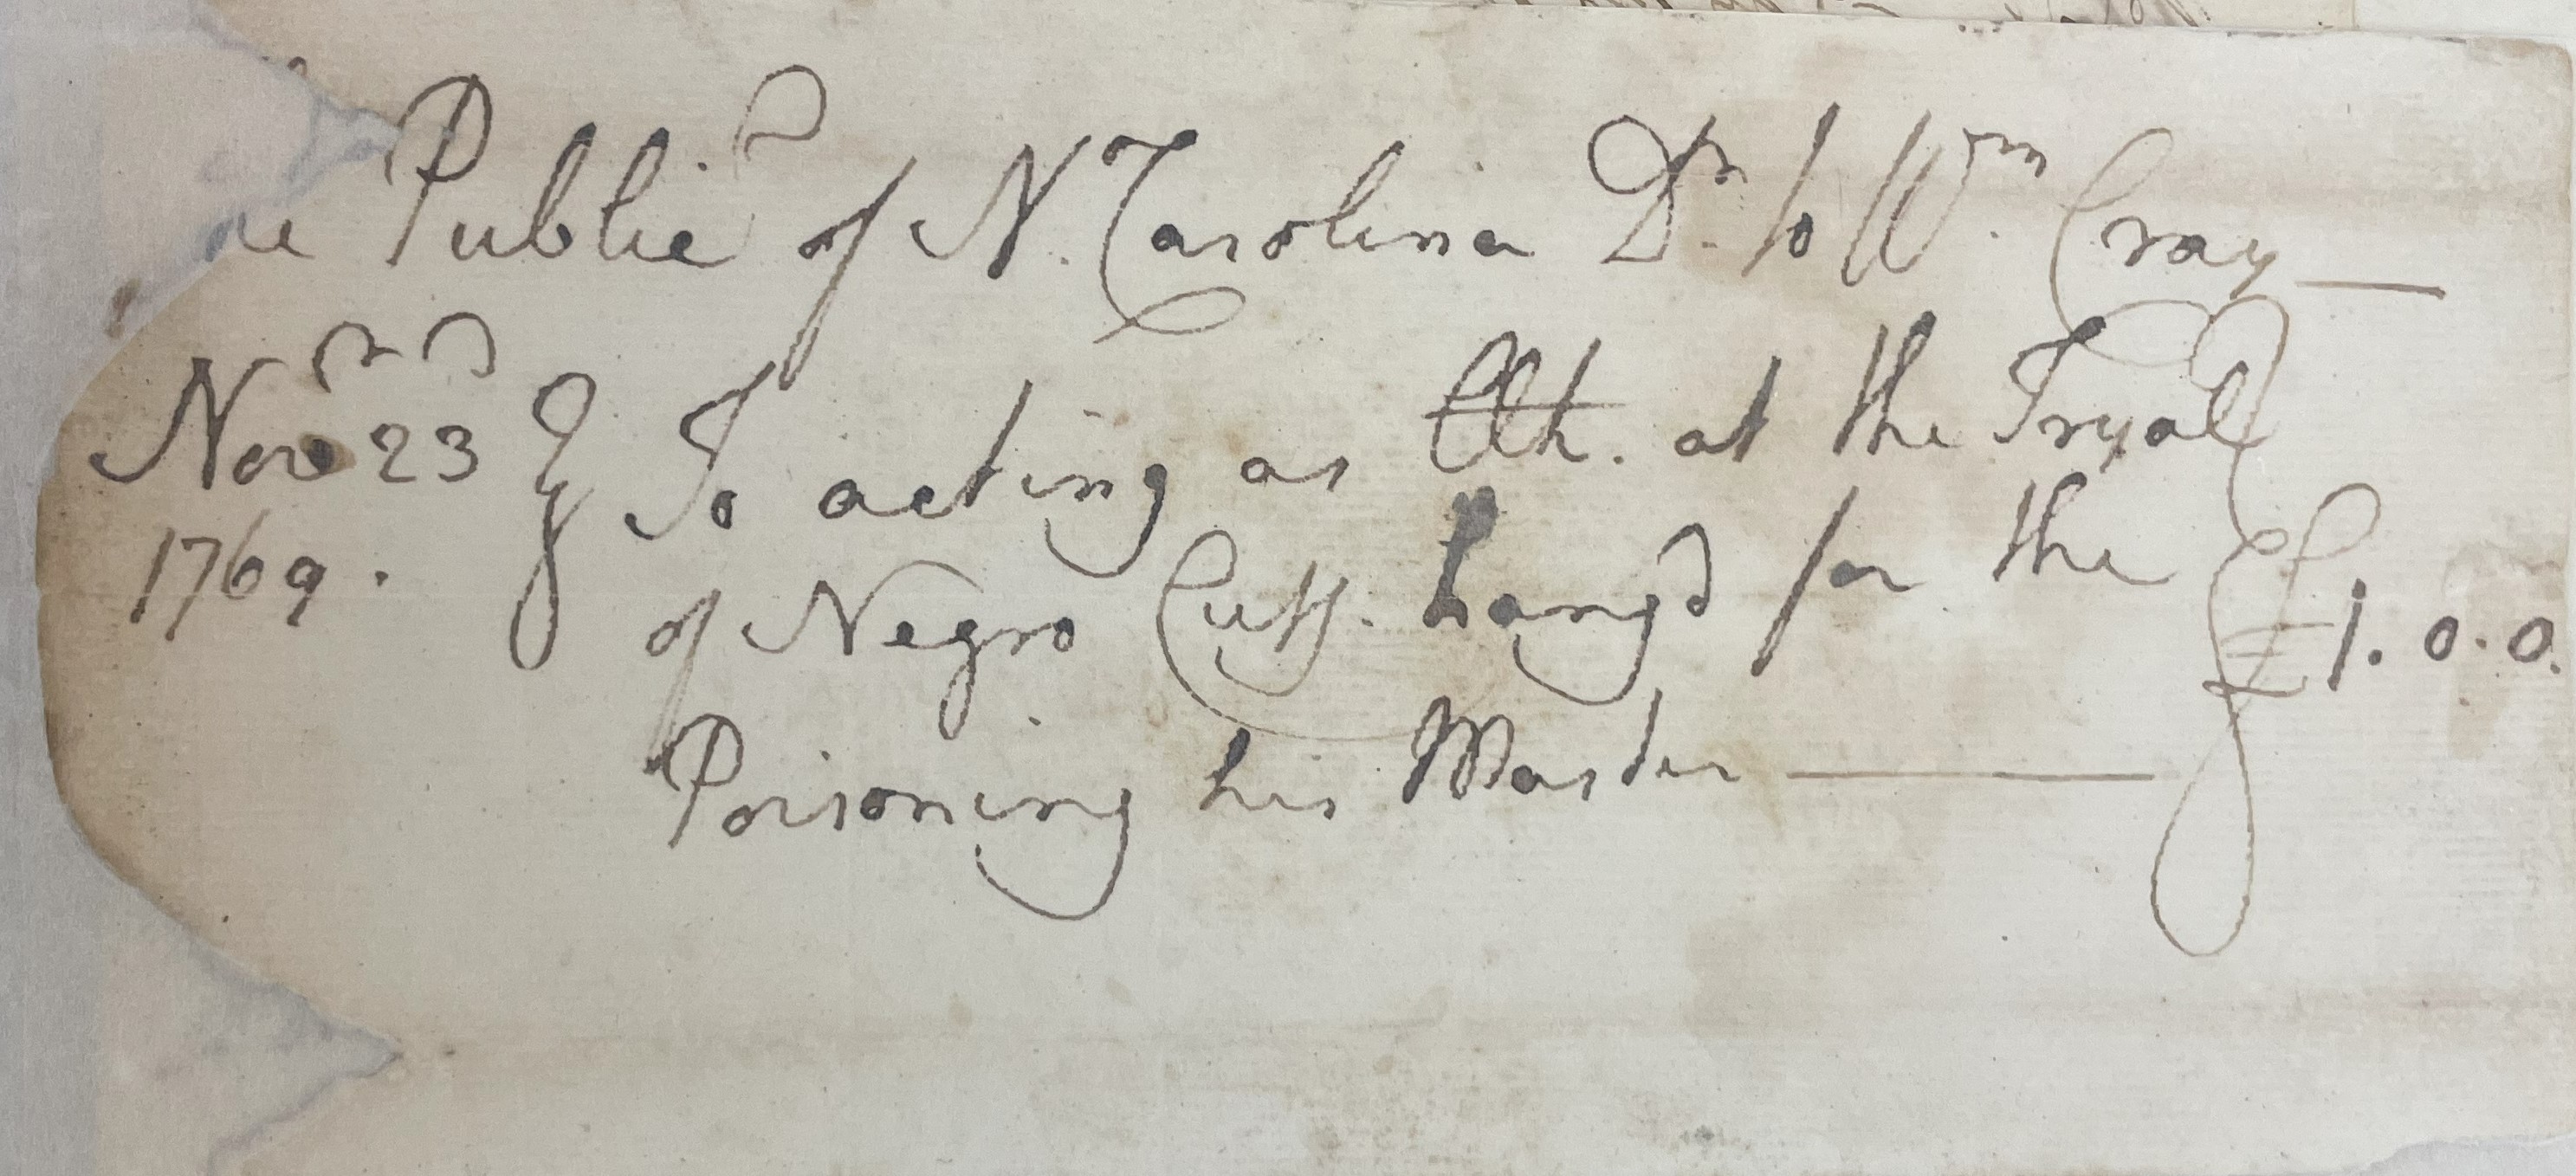 Public of N. Carolina Dr. to Wm. Cray
Novr 23 To acting as Clk. at the Tryal
1769. of Negro Cuff. hangd for the £1.0.0.
Poisoning his Master